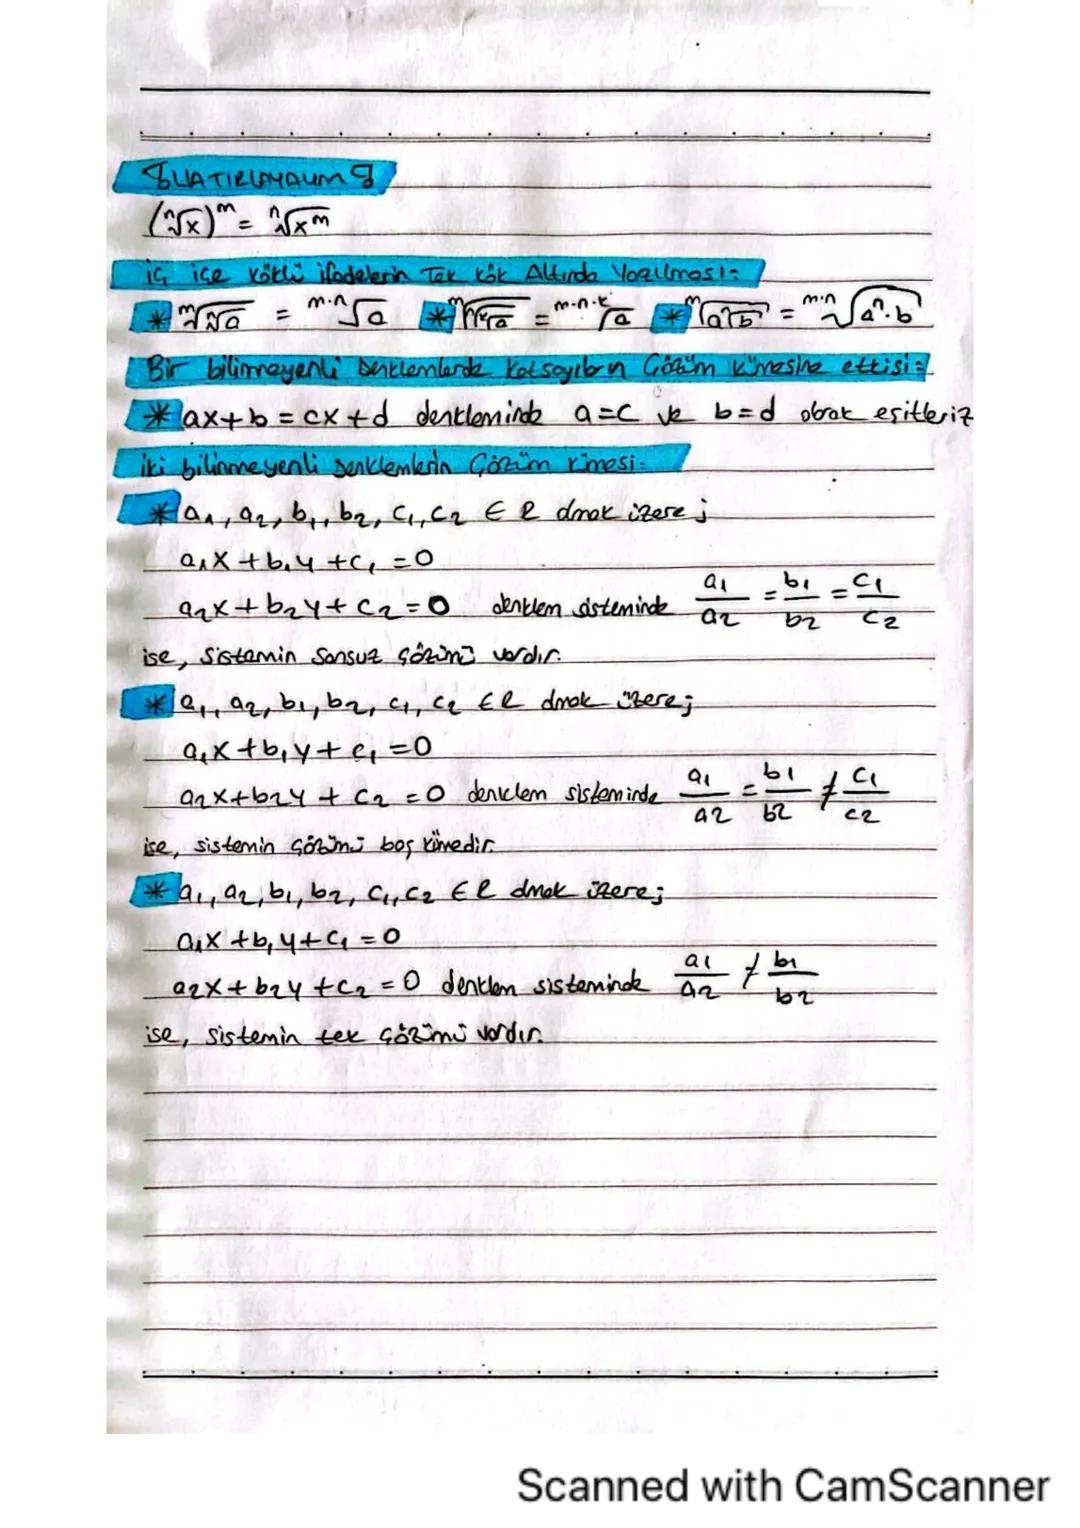 HATIRLAYALIM
(ⁿ√x)ᵐ = ⁿ√xᵐ
iç içe köklü ifadelerin Tek kök Altında Yazılması:
* ᵐ√ⁿ√a = ᵐ·ⁿ√a * ᵐ√ⁿ√ᵏ√a = ᵐ·ⁿ·ᵏ√a * ᵐ√aⁿ√b = ᵐ·ⁿ√aⁿ·b
Bir bilinmeyenli Denklemlerde Katsayıların Çözüm kümesine etkisi:
* ax+b = cx+d denkleminde a=c ve b=d olarak eşitleriz
iki bilinmeyenli denklemlerin Çözüm kümesi:
* a₁, a₂, b₁, b₂, c₁, c₂ ∈ R olmak üzere;
a₁x + b₁y + c₁ = 0
a₂x + b₂y + c₂ = 0 denklem sisteminde a₁/a₂ = b₁/b₂ = c₁/c₂
ise, sistemin sonsuz çözümü vardır.
* a₁, a₂, b₁, b₂, c₁, c₂ ∈ R olmak üzere;
a₁x + b₁y + c₁ = 0
a₂x + b₂y + c₂ = 0 denklem sisteminde a₁/a₂ = b₁/b₂ ≠ c₁/c₂
ise, sistemin çözümü boş kümedir.
* a₁, a₂, b₁, b₂, c₁, c₂ ∈ R olmak üzere;
a₁x + b₁y + c₁ = 0
a₂x + b₂y + c₂ = 0 denklem sisteminde a₁/a₂ ≠ b₁/b₂
ise, sistemin tek çözümü vardır.
Scanned with CamScanner